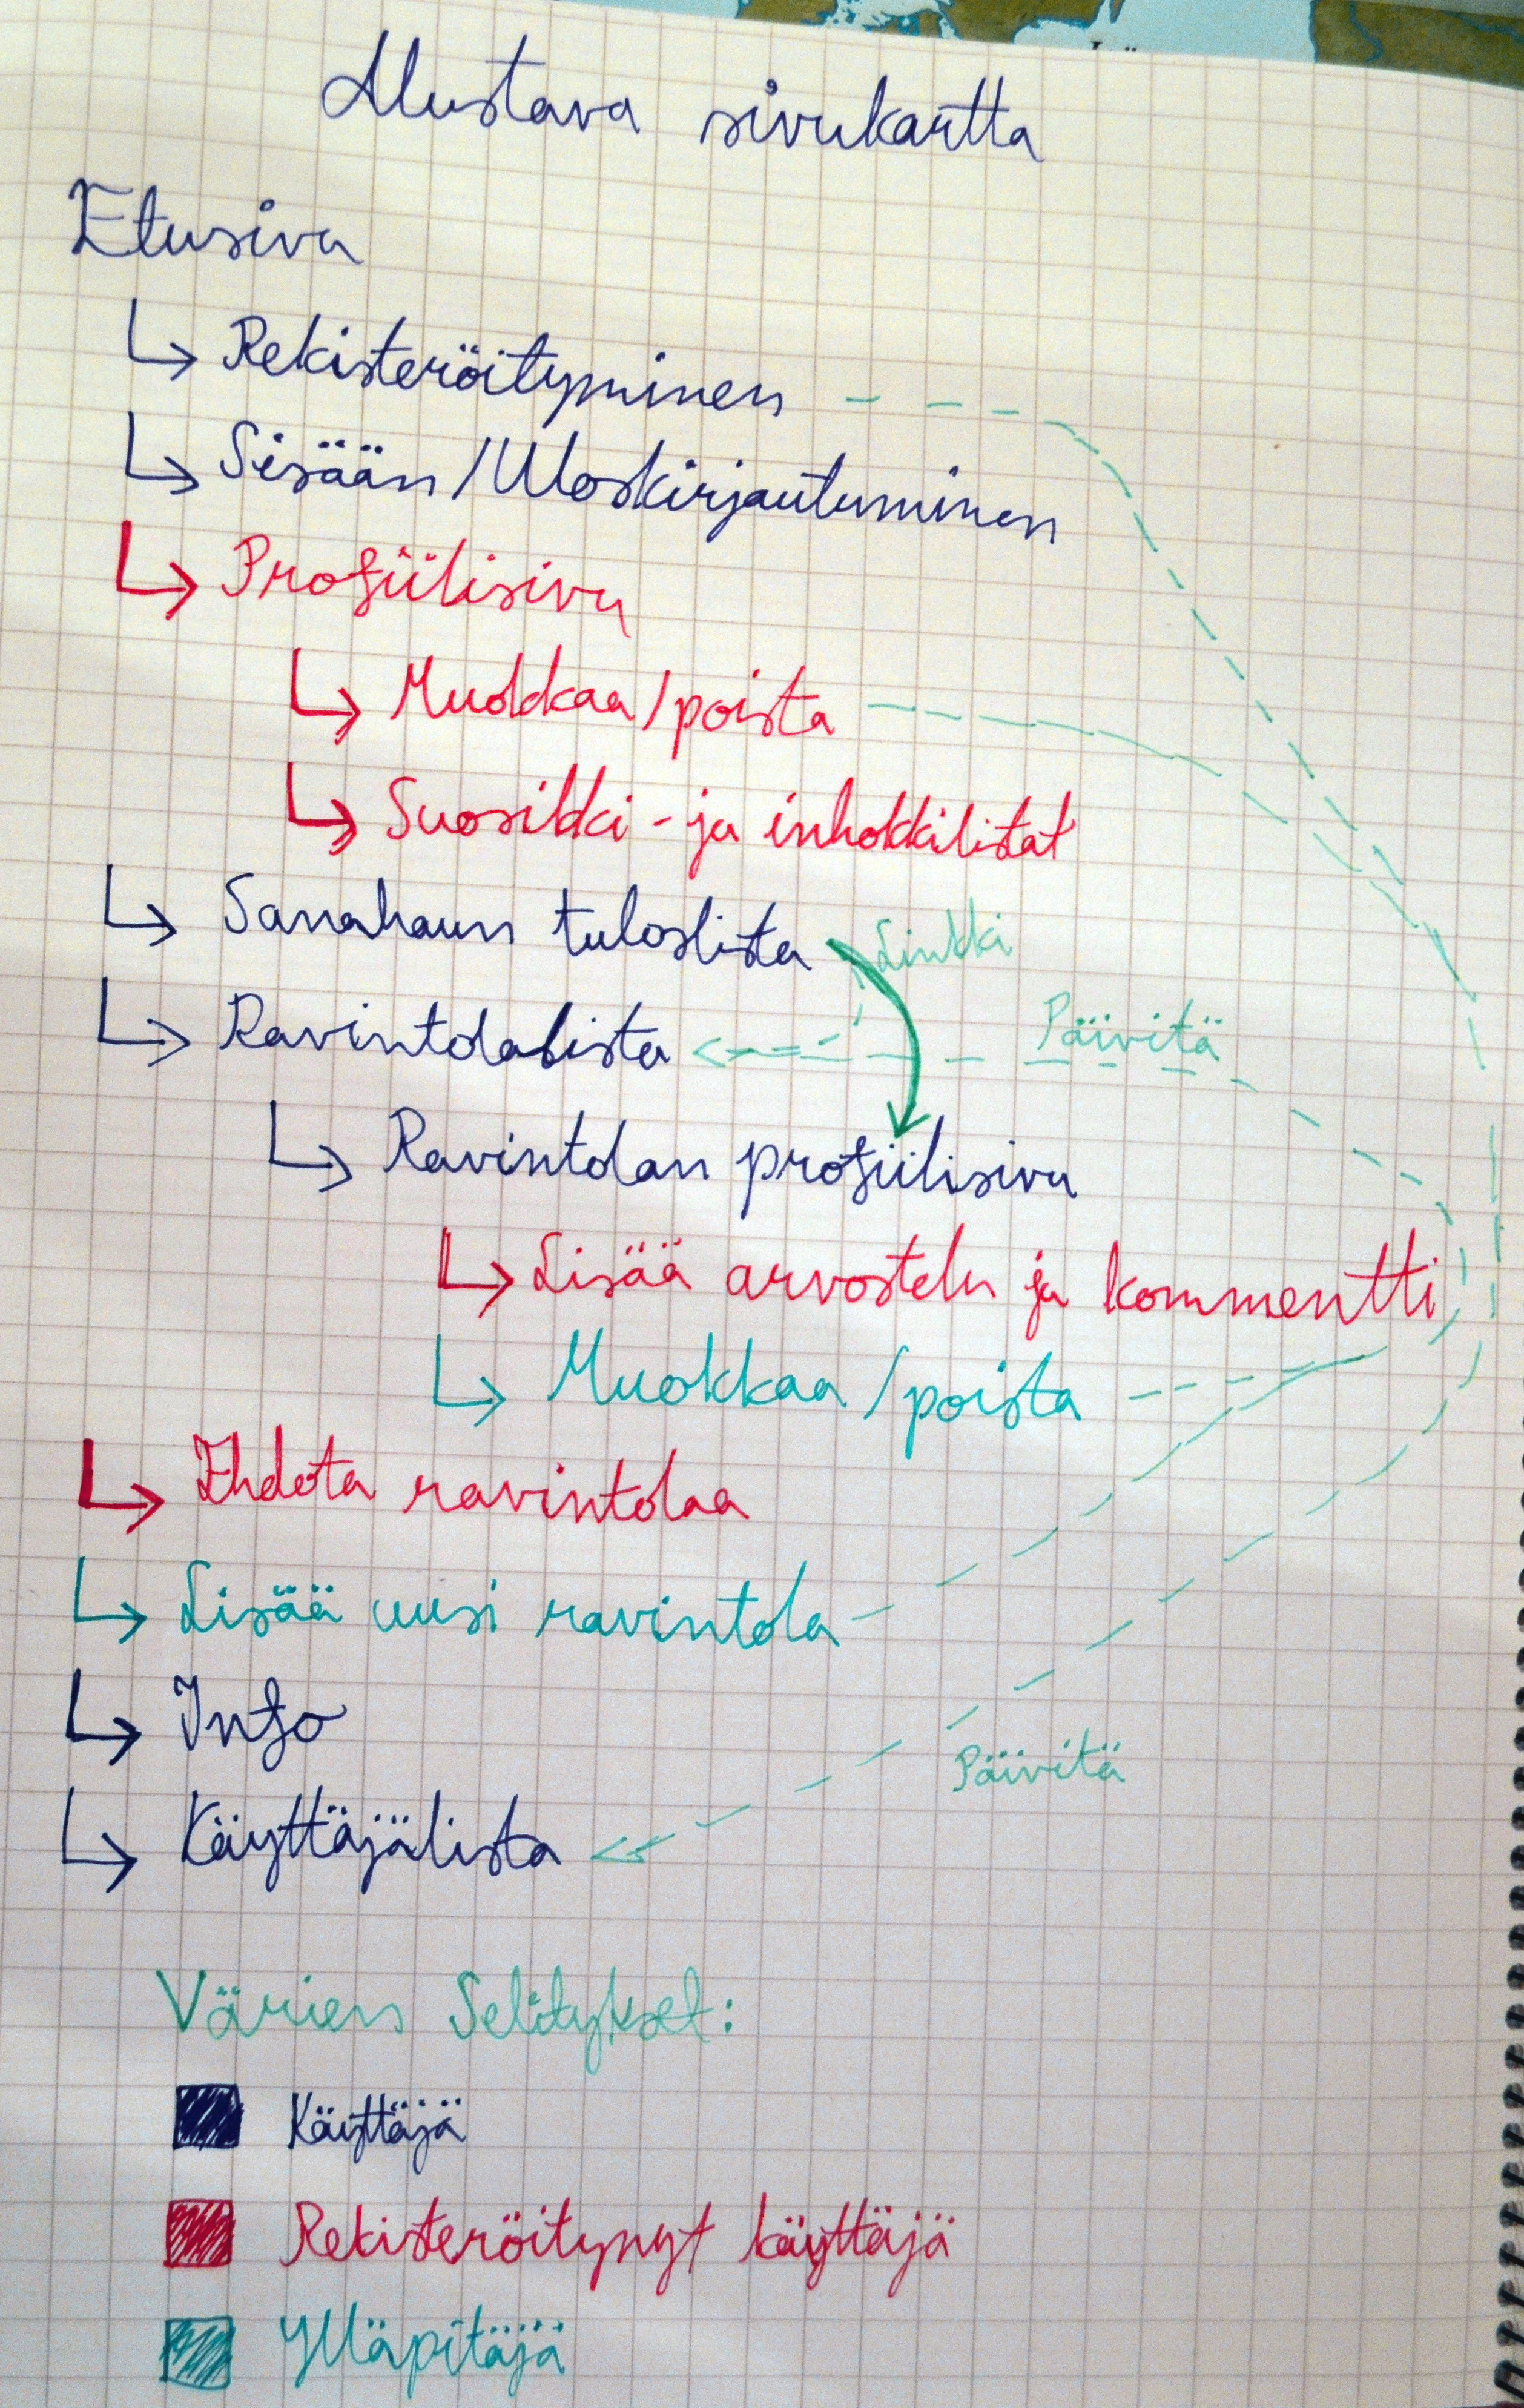 Alustava sivukartta
Etusivu
Rekisteröityminen
Sisään/Uloskirjautuminen
Profiilisivu
Muokkaa/poista
Suosikki- ja inhokkilistat
Sanahaun tuloslista
Linkki
Ravintolalista
Päivitä
Ravintolan profiilisivu
Lisää arvostelu ja kommentti
Muokkaa/poista
Ehdota ravintolaa
Lisää uusi ravintola
Info
Päivitä
Käyttäjälista
Värien Selitykset:
Käyttäjä
Rekisteröitynyt käyttäjä
Ylläpitäjä